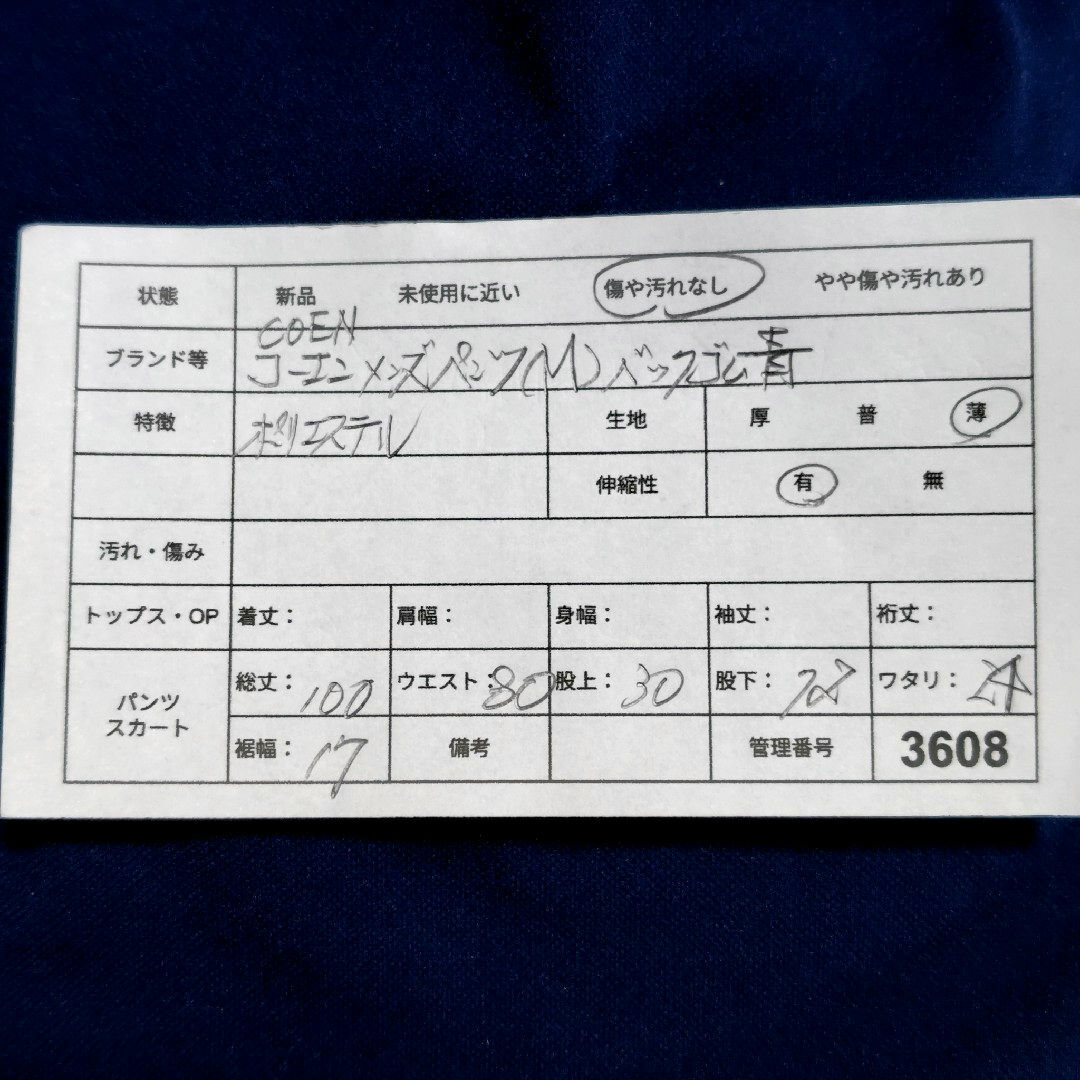 状態 新品 未使用に近い 傷や汚れなし やや傷や汚れあり
COEN
ブランド等 コーエンメンズパンツ(M)バックゴム青
特徴 ポリエステル 生地 厚 普 薄
伸縮性 有 無
汚れ・傷み
トップス・OP 着丈: 肩幅: 身幅: 袖丈: 裄丈:
パンツ スカート 総丈: 100 ウエスト: 80 股上: 30 股下: ワタリ:
裾幅: 17 備考 管理番号 3608